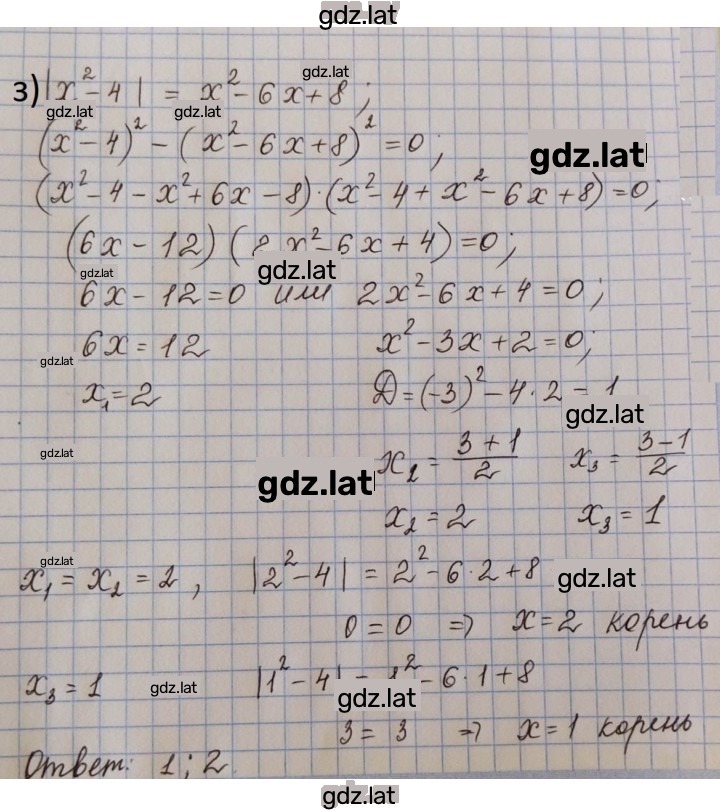 gdz.lat
3) |x² - 4| = x² - 6x + 8;
gdz.lat
gdz.lat gdz.lat
(x² - 4)² - (x² - 6x + 8)² = 0;
gdz.lat
(x² - 4 - x² + 6x - 8) · (x² - 4 + x² - 6x + 8) = 0;
(6x - 12) (2x² - 6x + 4) = 0;
gdz.lat gdz.lat
6x - 12 = 0 или 2x² - 6x + 4 = 0;
6x = 12 x² - 3x + 2 = 0;
gdz.lat
x₁ = 2 Д = (-3)² - 4 · 2 = 1
gdz.lat
gdz.lat x₂ = (3 + 1)/2 x₃ = (3 - 1)/2
gdz.lat
x₂ = 2 x₃ = 1
gdz.lat
x₁ = x₂ = 2, |2² - 4| = 2² - 6 · 2 + 8
gdz.lat
0 = 0 ⇒ x = 2 корень
x₃ = 1 |1² - 4| = 1² - 6 · 1 + 8
gdz.lat gdz.lat
3 = 3 ⇒ x = 1 корень
Ответ: 1; 2.
gdz.lat